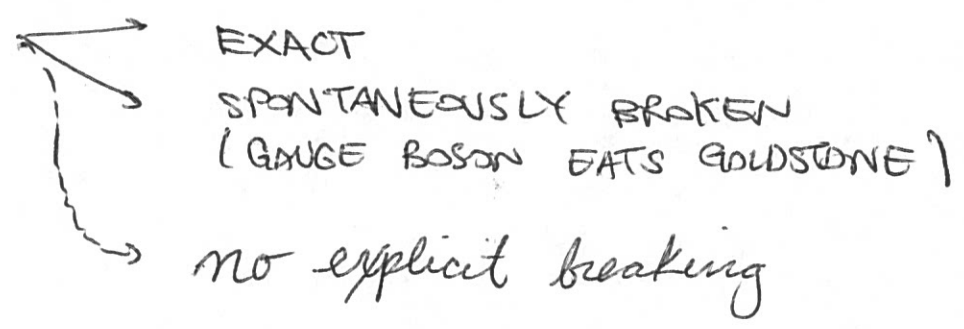 EXACT
SPONTANEOUSLY BROKEN
(GAUGE BOSON EATS GOLDSTONE)
no explicit breaking